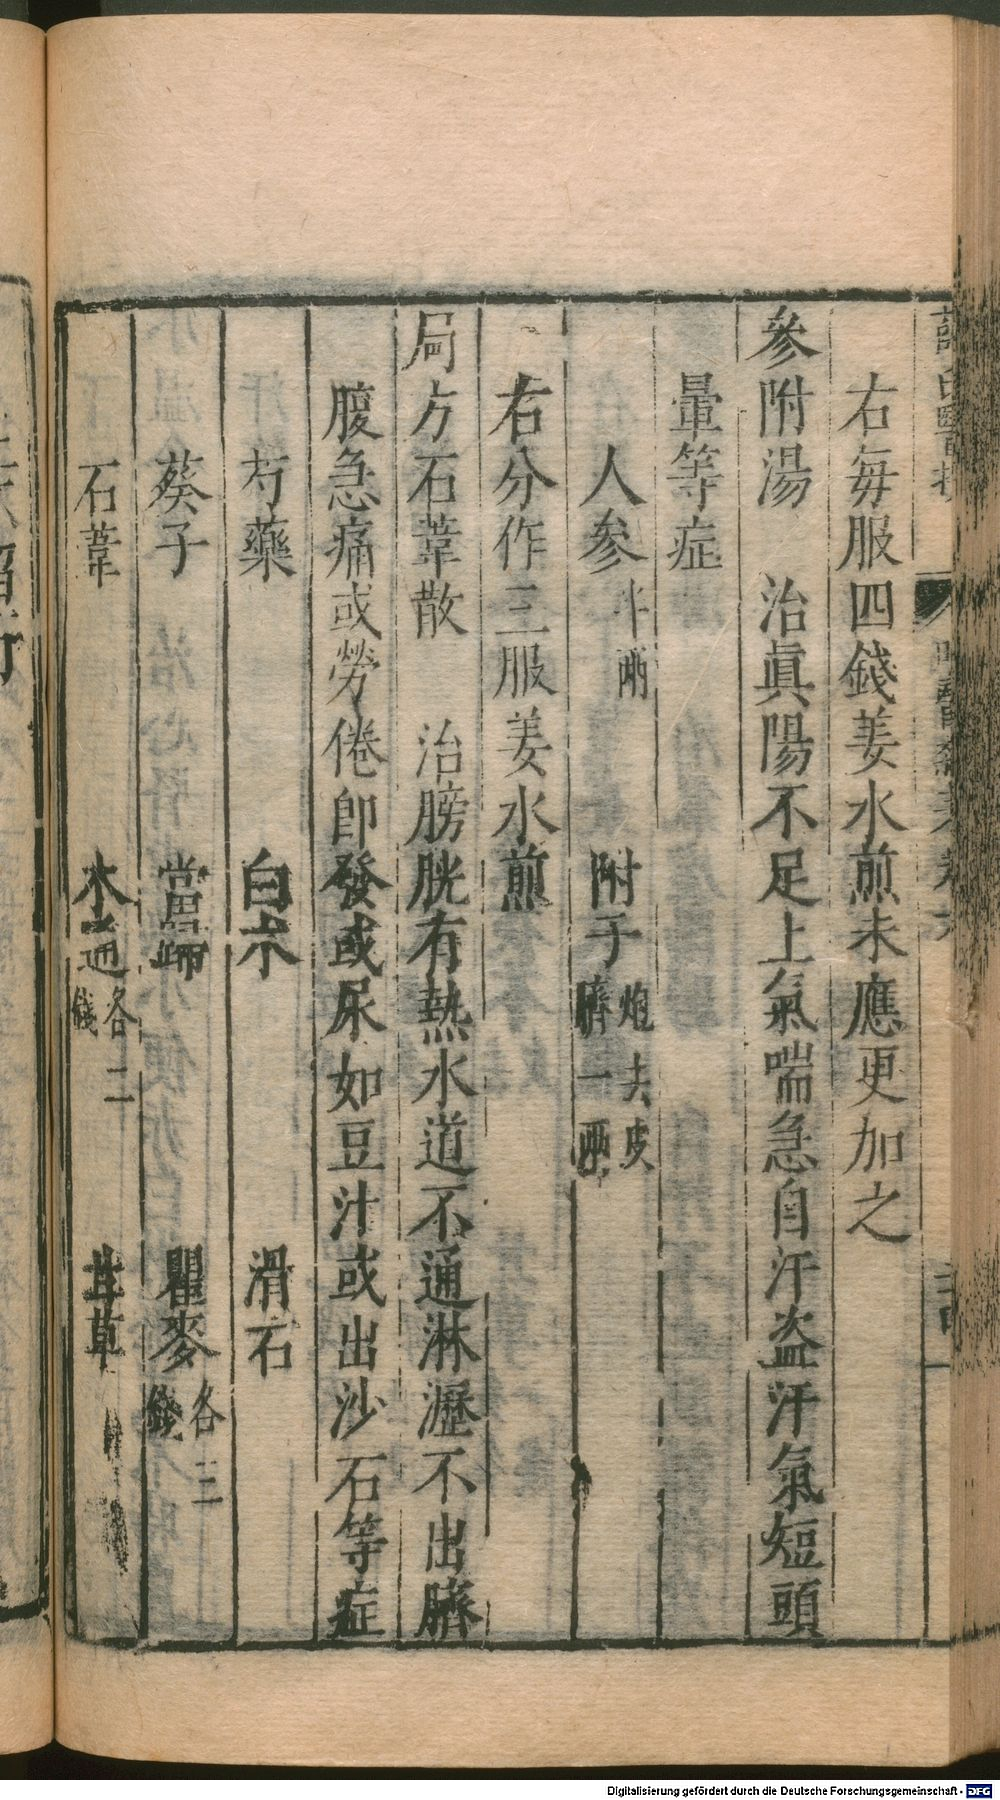 右每服四錢姜水煎未應更加之
參附湯　治眞陽不足上氣喘急自汗盗汗氣短頭
暈等症
人參半兩　附子炮去皮臍一兩
右分作三服姜水煎
局方石葦散　治膀胱有熱水道不通淋瀝不出臍
腹急痛或勞倦卽發或尿如豆汁或出沙石等症
芍藥　白朮　滑石
葵子　當歸　瞿麥各三錢
石葦　木通各二錢
Digitalisierung gefördert durch die Deutsche Forschungsgemeinschaft - DFG